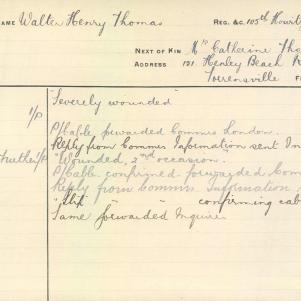 NAME Walter Henry Thomas
REG. &C. 105th Howitz
NEXT OF KIN Mrs Catherine Tho
ADDRESS 121 Henley Beach R
Torrensville
1/P "Severely wounded"
P/Cable forwarded Commis London.
Reply from Commis Information sent In
further 1/P "Wounded, 2nd occasion.
P/Cable confirmed forwarded Com
Reply from Commis. Information
" " confirming cab
Same forwarded Inquirer